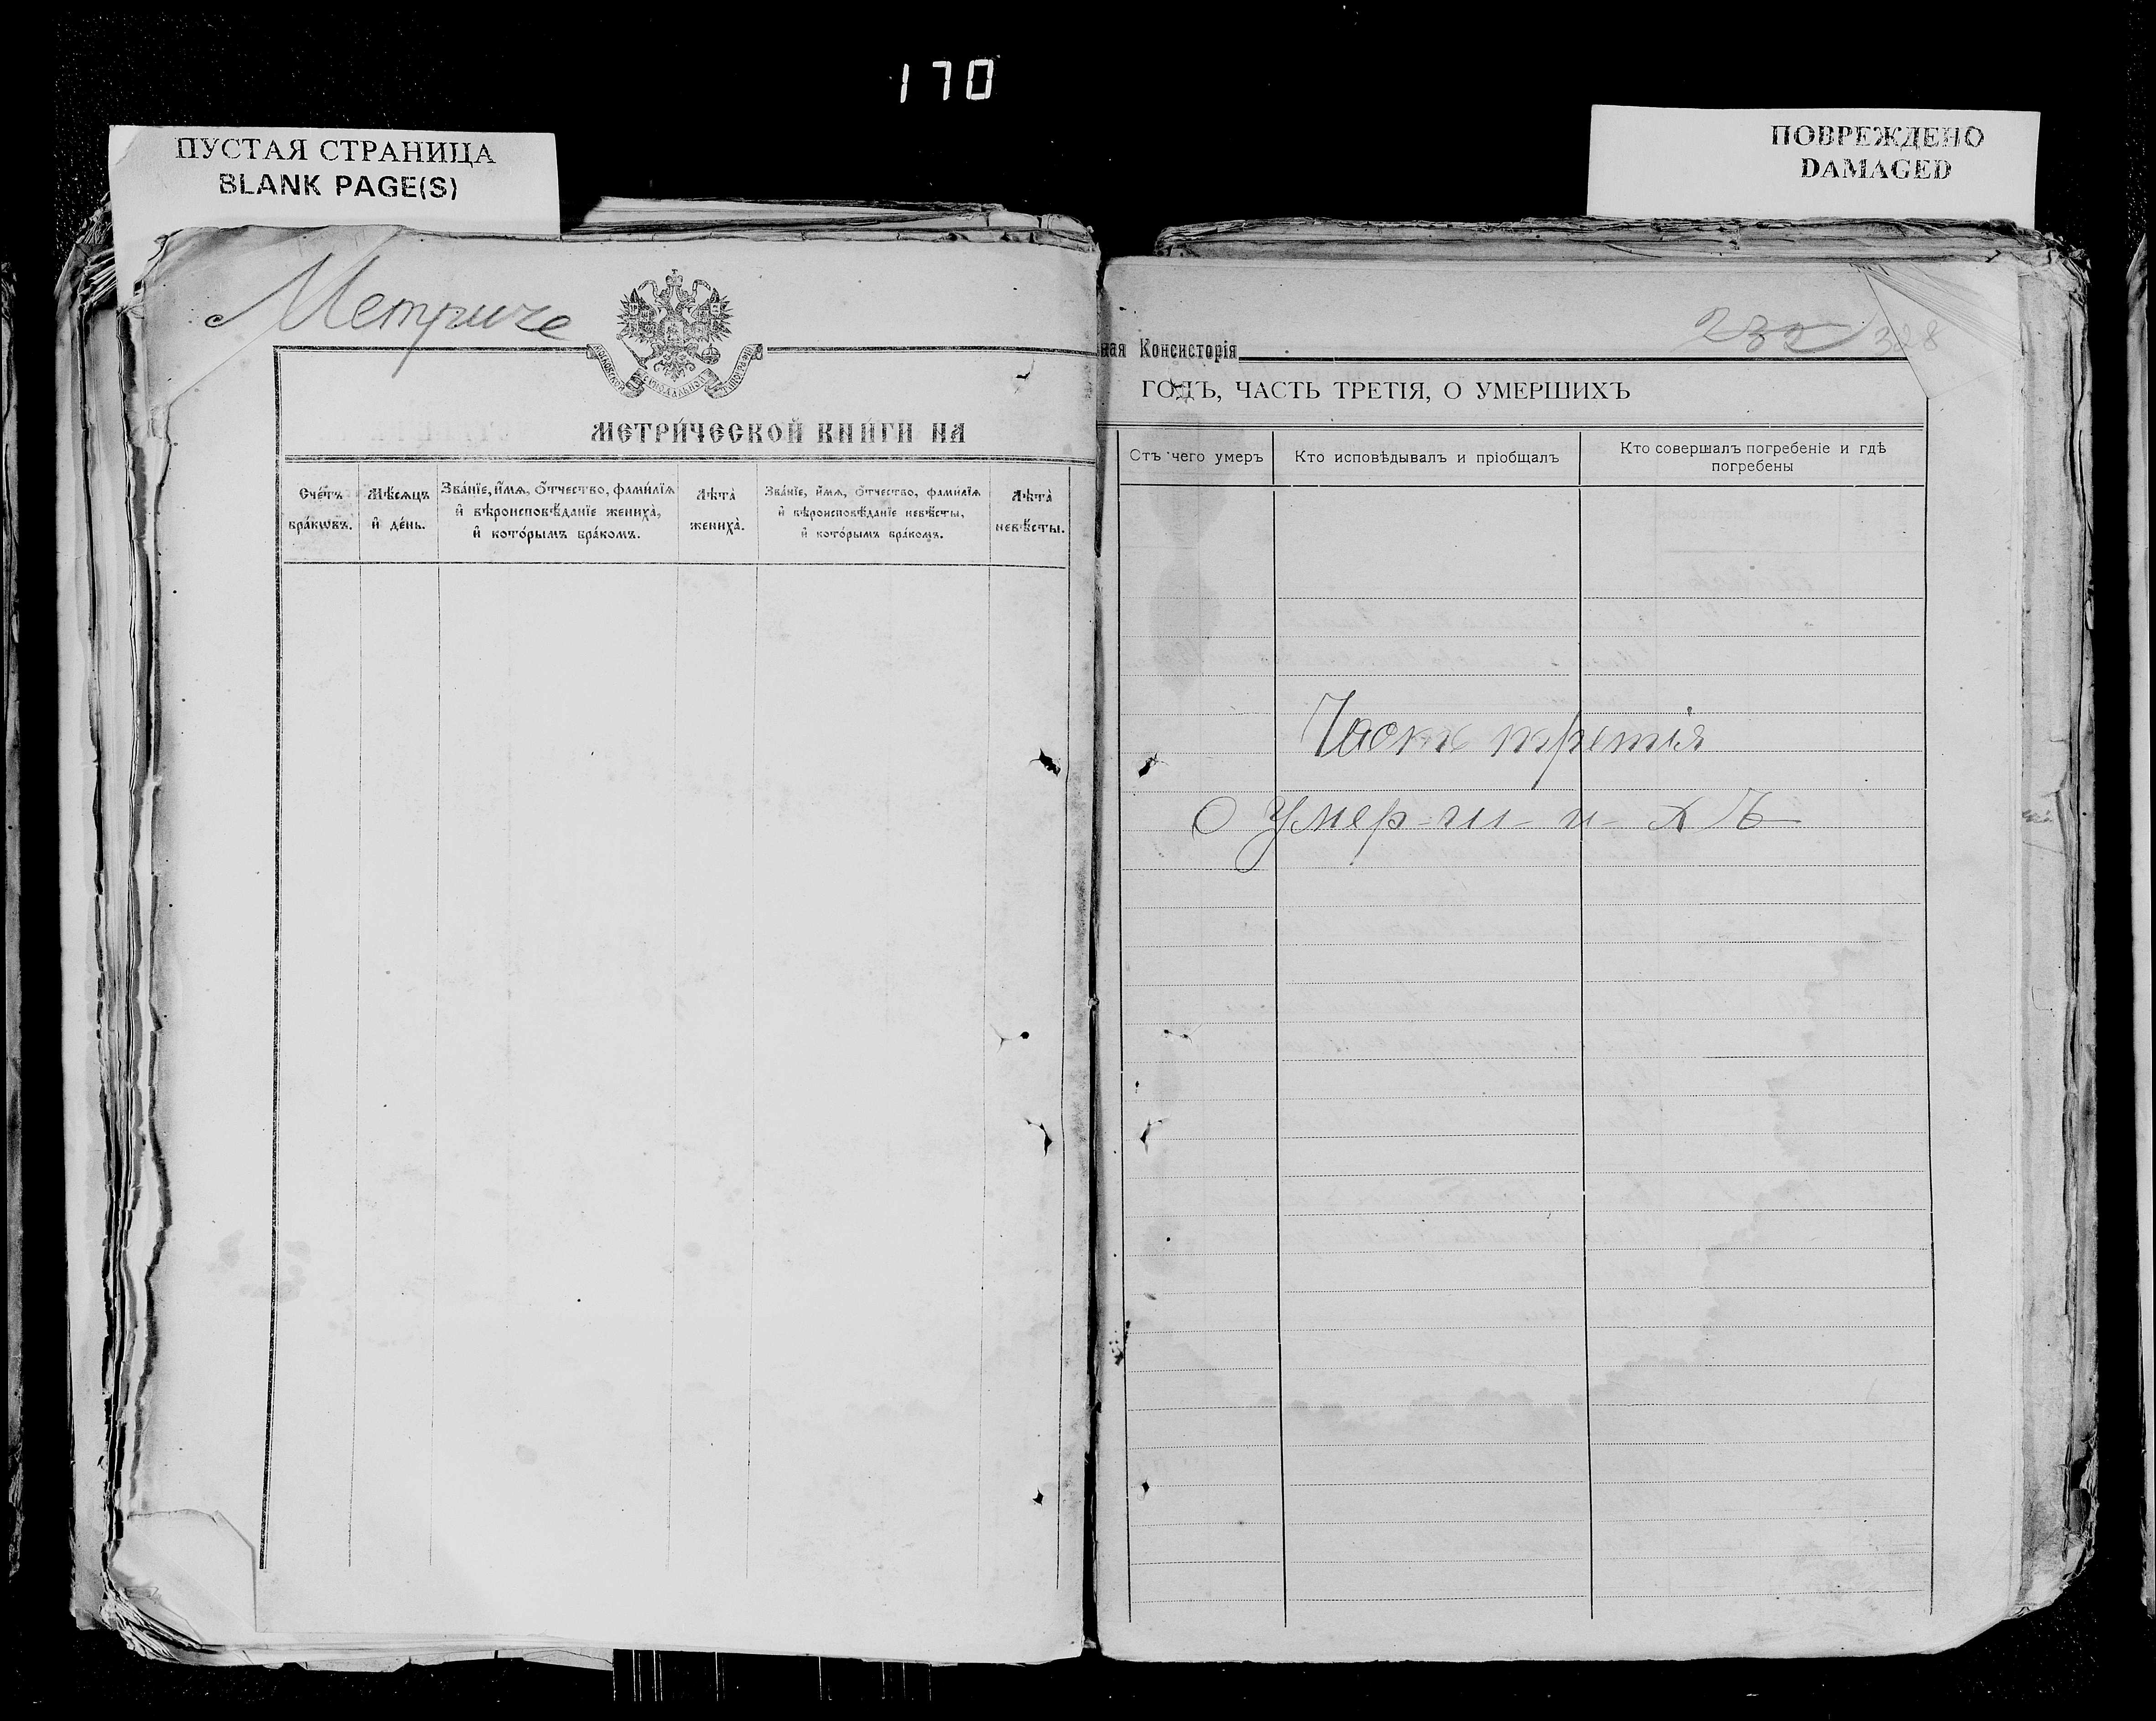 170
ПУСТАЯ СТРАНИЦА
BLANK PAGE(S)
ПОВРЕЖДЕНО
DAMAGED
Метриче
МОСКОВСКОЙ СѴНОДАЛЬНОЙ ТИПОГРАФІИ
МЕТРИ́ЧЕСКОЙ КНИ́ГИ НА
Сче́тъ бра́кѡвъ.
Мѣ́сѧцъ и҆ де́нь.
Зва́нїе, и҆́мѧ, ѻ҆́тчество, фами́лїѧ
и҆ вѣроисповѣ́данїе жениха̀,
и҆ кото́рымъ бра́комъ.
Лѣта̀ жениха̀.
Зва́нїе, и҆́мѧ, ѻ҆́тчество, фами́лїѧ
и҆ вѣроисповѣ́данїе невѣ́сты,
и҆ кото́рымъ бра́комъ.
Лѣта̀ невѣ́сты.
ная Консисторія
232 328
ГОДЪ, ЧАСТЬ ТРЕТІЯ, О УМЕРШИХЪ
Отъ чего умеръ
Кто исповѣдывалъ и пріобщалъ
Кто совершалъ погребеніе и гдѣ
погребены
Часть третія
О Умер-ш-и-хъ